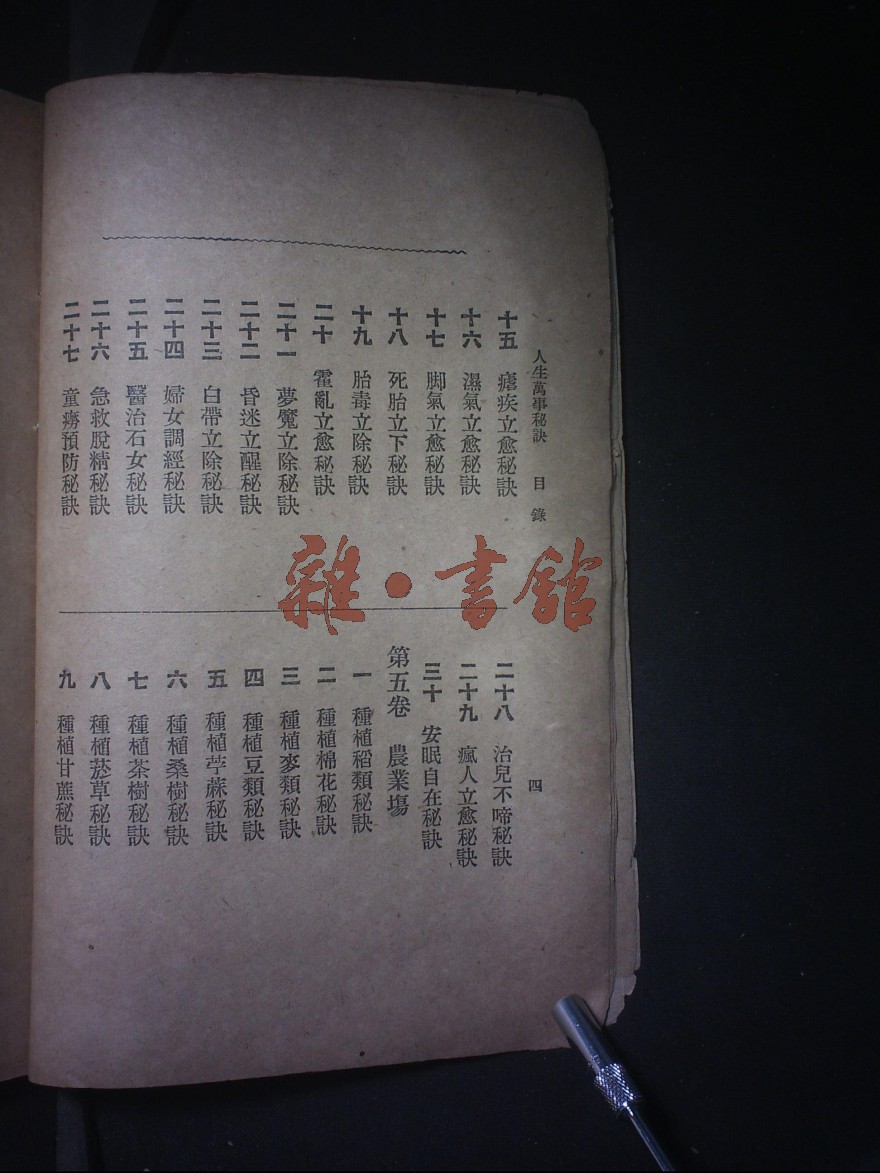 人生萬事秘訣 目錄
四
十五 瘧疾立愈秘訣
十六 濕氣立愈秘訣
十七 脚氣立愈秘訣
十八 死胎立下秘訣
十九 胎毒立除秘訣
二十 霍亂立愈秘訣
二十一 夢魘立除秘訣
二十二 昏迷立醒秘訣
二十三 白帶立除秘訣
二十四 婦女調經秘訣
二十五 醫治石女秘訣
二十六 急救脫精秘訣
二十七 童癆預防秘訣
二十八 治兒不啼秘訣
二十九 瘋人立愈秘訣
三十 安眠自在秘訣
第五卷 農業塲
一 種植稻類秘訣
二 種植棉花秘訣
三 種植麥類秘訣
四 種植豆類秘訣
五 種植苧蔴秘訣
六 種植桑樹秘訣
七 種植茶樹秘訣
八 種植菸草秘訣
九 種植甘蔗秘訣
雜·書館